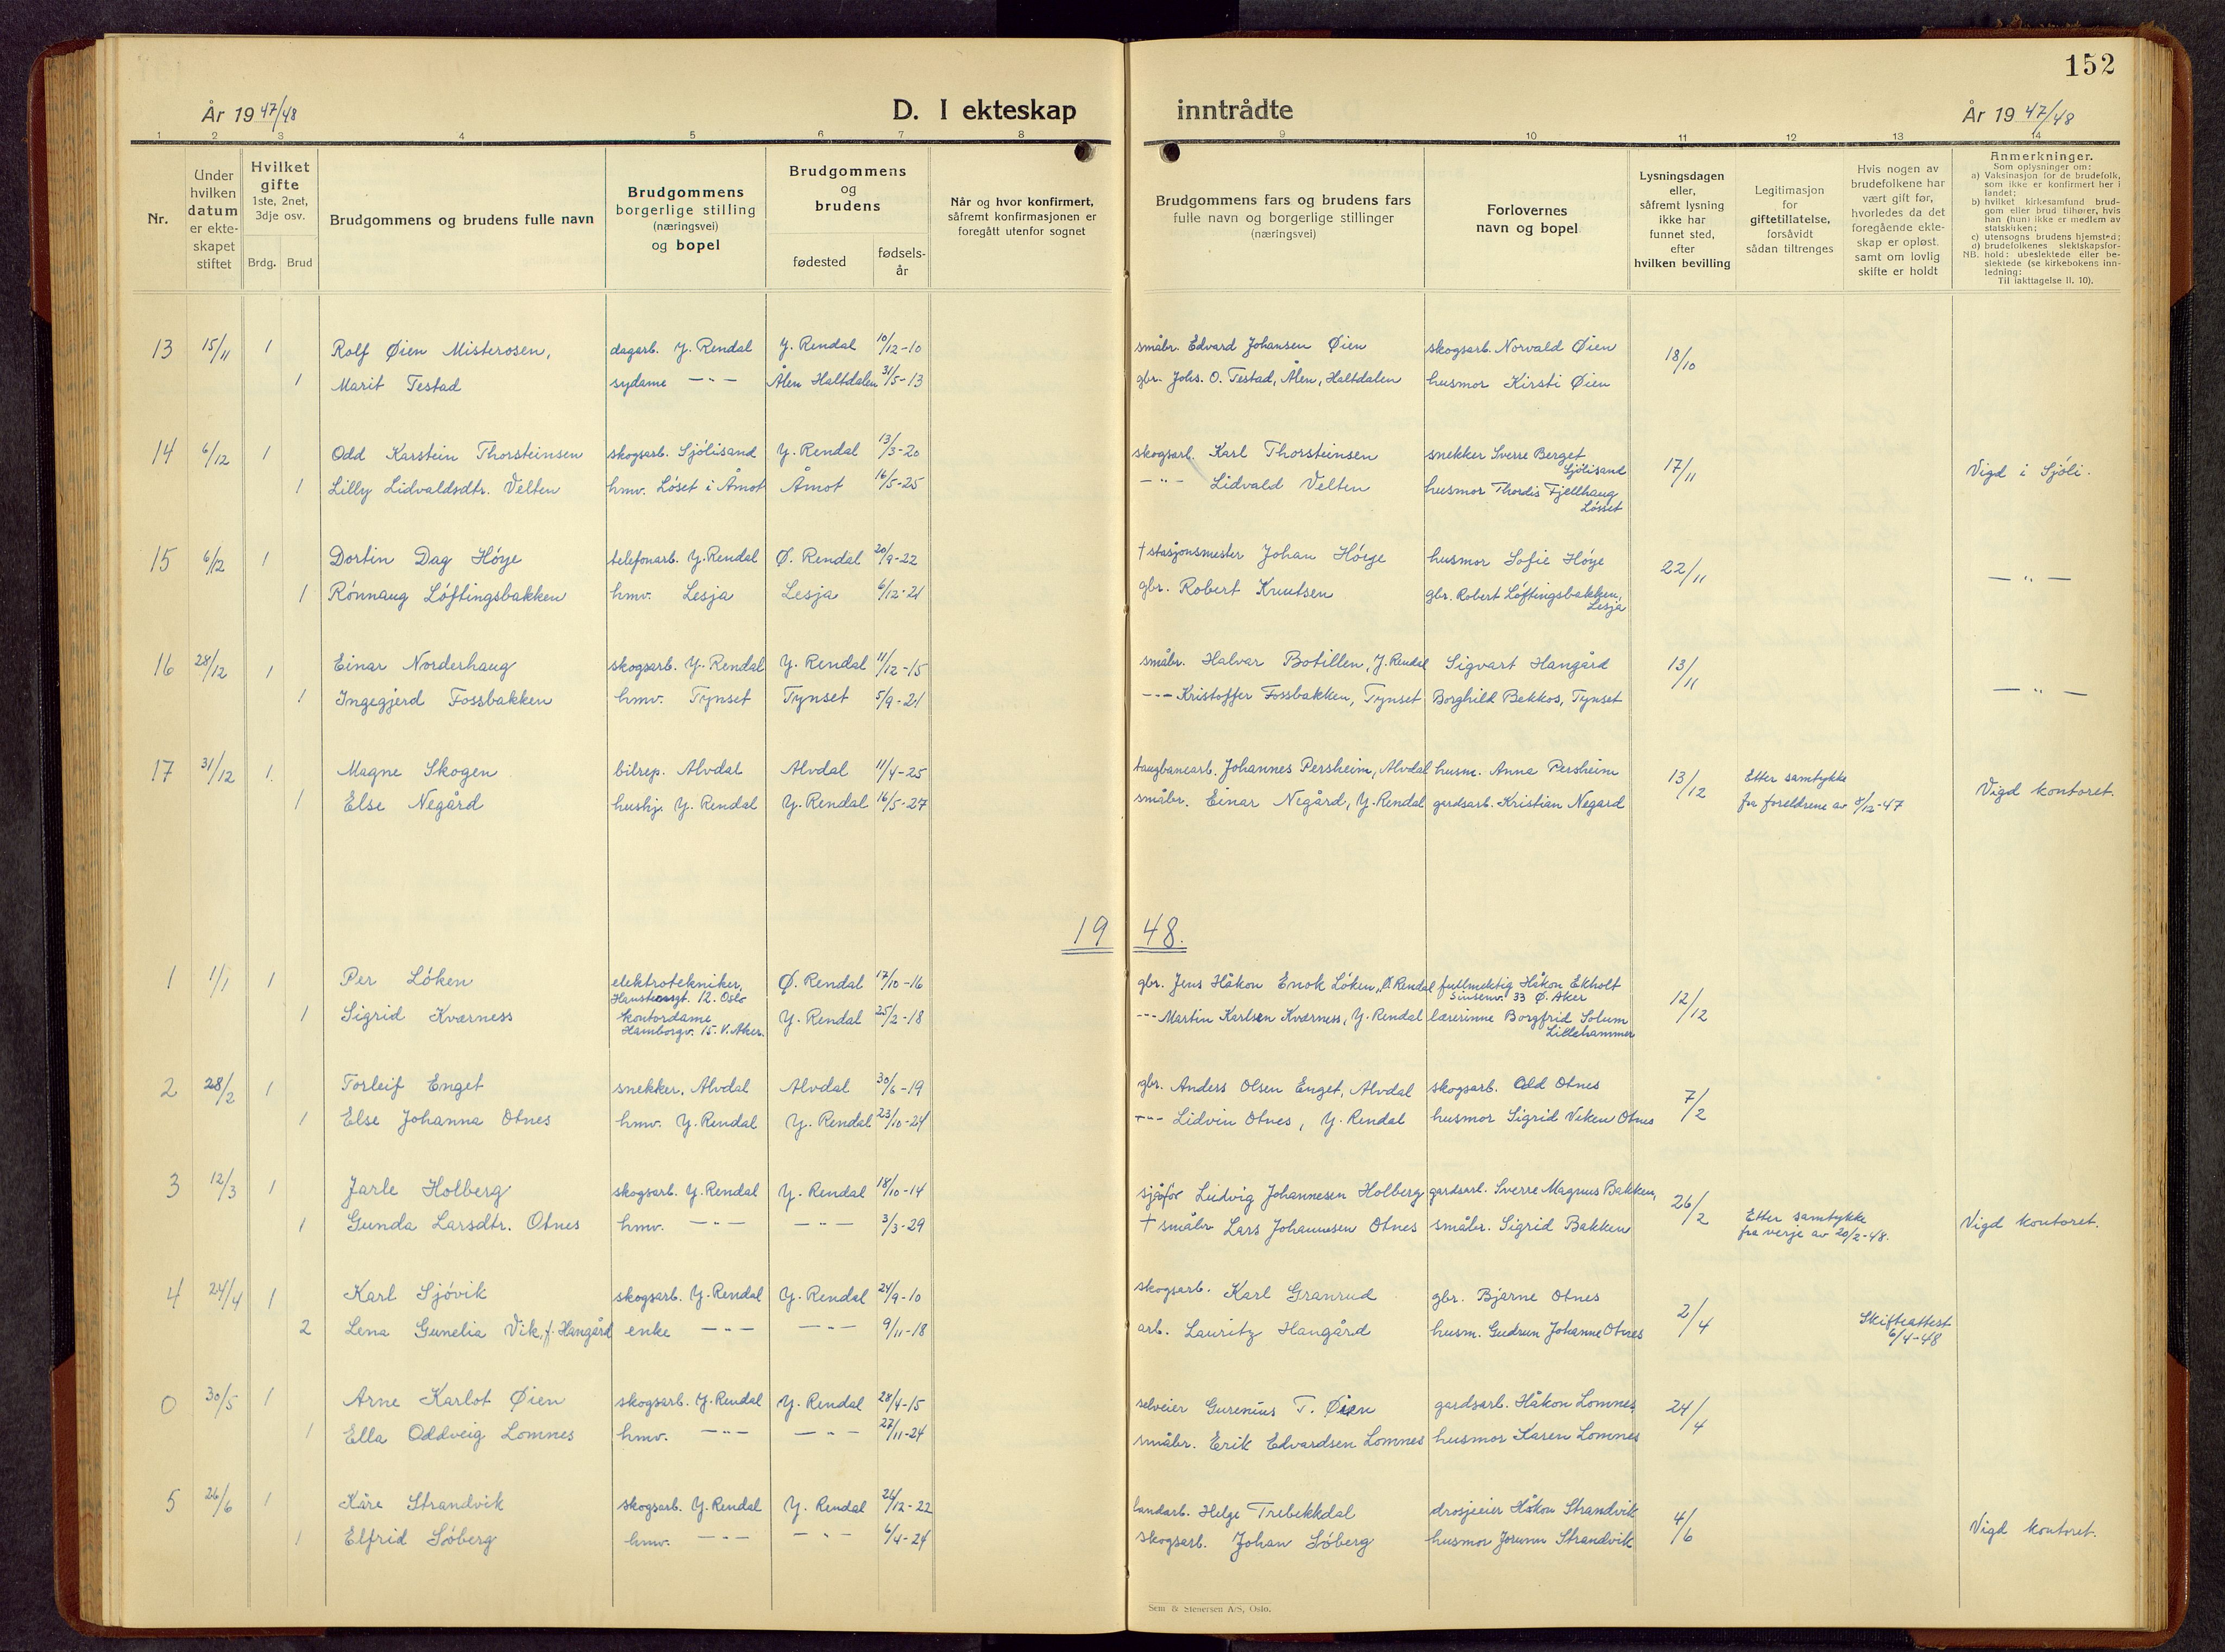 152
År 19 47/48
D. I ekteskap inntrådte
År 19 47/48
1 2 3 4 5 6 7 8 9 10 11 12 13 14
Nr.
Under hvilken datum er ekte-skapet stiftet
Hvilket gifte 1ste, 2net, 3dje osv.
Brdg. Brud
Brudgommens og brudens fulle navn
Brudgommens borgerlige stilling (næringsvei) og bopel
Brudgommens og brudens
fødested
fødsels-år
Når og hvor konfirmert, såfremt konfirmasjonen er foregått utenfor sognet
Brudgommens fars og brudens fars fulle navn og borgerlige stillinger (næringsvei)
Forlovernes navn og bopel
Lysningsdagen eller, såfremt lysning ikke har funnet sted, efter hvilken bevilling
Legitimasjon for giftetillatelse, forsåvidt sådan tiltrenges
Hvis nogen av brudefolkene har vært gift før, hvorledes da det foregående ekte-skap er opløst, samt om lovlig skifte er holdt
Anmerkninger.
Som oplysninger om:
a) Vaksinasjon for de brudefolk, som ikke er konfirmert her i landet;
b) hvilket kirkesamfund brud-gom eller brud tilhører, hvis han (hun) ikke er medlem av statskirken;
c) utensogns brudens hjemsted;
d) brudefolkenes slektskapsfor-hold: ubeslektede eller be-slektede (se kirkebokens inn-ledning:
NB.
Til iakttagelse II. 10).
13 15/11 1 Rolf Øien Misterosen, dagarb. Y. Rendal Y. Rendal 10/12-10 småbr. Edvard Johansen Øien skogsarb. Norvald Øien 18/10
1 Marit Testad sydame -"- Ålen Haltdalen 31/5-13 gbr. Johs. O. Testad, Ålen, Haltdalen husmor Kirsti Øien
14 6/12 1 Odd Karstein Thorsteinsen skogsarb. Sjölisand Y. Rendal 13/3-20 skogsarb. Karl Thorsteinsen snekker Sverre Berget Sjölisand 17/11 Vigd i Sjöli.
1 Lilly Lidvaldsdtr. Velten hmv. Löset i Åmot Åmot 16/5-25 -"- Lidvald Velten husmor Thordis Fjellhaug Lösset
15 6/12 1 Dortin Dag Höye telefonarb. Y. Rendal Ø. Rendal 20/9-22 † stasjonsmester Johan Höege husmor Sofie Höye 22/11 -"-
1 Rönnaug Löftingsbakken hmv. Lesja Lesja 6/12-21 gbr. Robert Knutsen gbr. Robert Löftingsbakken, Lesja
16 28/12 1 Einar Norderhaug skogsarb. Y. Rendal Y. Rendal 11/12-15 småbr. Halvar Botillen, Y. Rendal Sigvart Hangård 13/11 -"-
1 Ingegjerd Fossbakken hmv. Tynset Tynset 5/9-21 -"- Kristoffer Fossbakken, Tynset Borghild Bekkos, Tynset
17 31/12 1. Magne Skogen bilrep. Alvdal Alvdal 11/4-25 taugbanearb. Johannes Persheim, Alvdal husm. Anna Persheim 13/12 Etter samtykke Vigd kontoret.
1 Else Negård hushj. Y. Rendal Y. Rendal 16/5-27 småbr. Einar Negård, Y. Rendal gardsarb. Kristian Negard fra foreldrene av 8/12-47
19 48.
1 1/1 1 Per Löken elektrotekniker, Hansteensgt. 12. Oslo Ø. Rendal 17/10-16 gbr. Jens Håkon Enok Löken, Ø. Rendal fullmektig Håkon Ekholt Sinsenv. 33 Ø. Aker 12/12
1 Sigrid Kværness kontordame Hamborgv. 15. V. Aker. Y. Rendal 25/2-18 -"- Martin Karlsen Kværness, Y. Rendal lærerinne Borgfrid Solum Lillehammer
2 28/2 1 Torleif Enget snekker. Alvdal Alvdal 30/6-19 gbr. Anders Olsen Enget, Alvdal skogsarb. Odd Otnes 7/2
1 Else Johanna Otnes hmv. Y. Rendal Y. Rendal 23/10-24 -"- Lidvin Otnes, Y. Rendal husmor Sigrid Veken Otnes
3 12/3 1 Jarle Holberg skogsarb. Y. Rendal Y. Rendal 18/10-14 sjåför Ludvig Johannesen Holberg gardsarb. Sverre Magnus Bakken, 26/2
1 Gunda Larsdtr. Otnes hmv. -"- -"- 3/3-29 † småbr Lars Johannesen Otnes småbr. Sigrid Bakken Etter samtykke fra verje av 20/2-48. Vigd kontoret.
4 24/4 1 Karl Sjövik skogsarb. Y. Rendal Y. Rendal 24/9-10 skogsarb. Karl Granrud gbr. Bjarne Otnes 2/4
2 Lena Gunelia Vik, f. Hangård enke -"- -"- 9/11-18 arb. Lauritz Hangård husm. Gudrun Johanne Otnes Skifteattest 6/4-48
0 30/5 1 Arne Karlot Øien skogsarb. Y. Rendal Y. Rendal 28/4-15 selveier Gurenius T. Øien gardsarb. Håkon Lomnes 24/4
1 Ella Oddveig Lomnes hmv. -"- -"- 27/11-24 småbr. Erik Edvardsen Lomnes husmor Karen Lomnes
5 26/6 1 Kåre Strandvik skogsarb. Y. Rendal Y. Rendal 26/12-22 landarb. Helge Trebekkdal drosjeeier Håkon Strandvik 4/6
1 Elfrid Söberg hmv. -"- -"- 6/4-24 skogsarb. Johan Söberg husmor Jorunn Strandvik Vigd kontoret.
Sem & Stenersen A/S, Oslo.